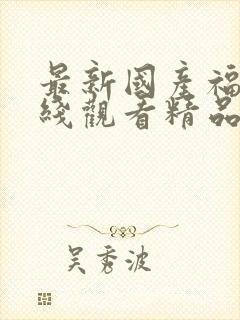 最新國產福
綫觀看精品
吴秀波